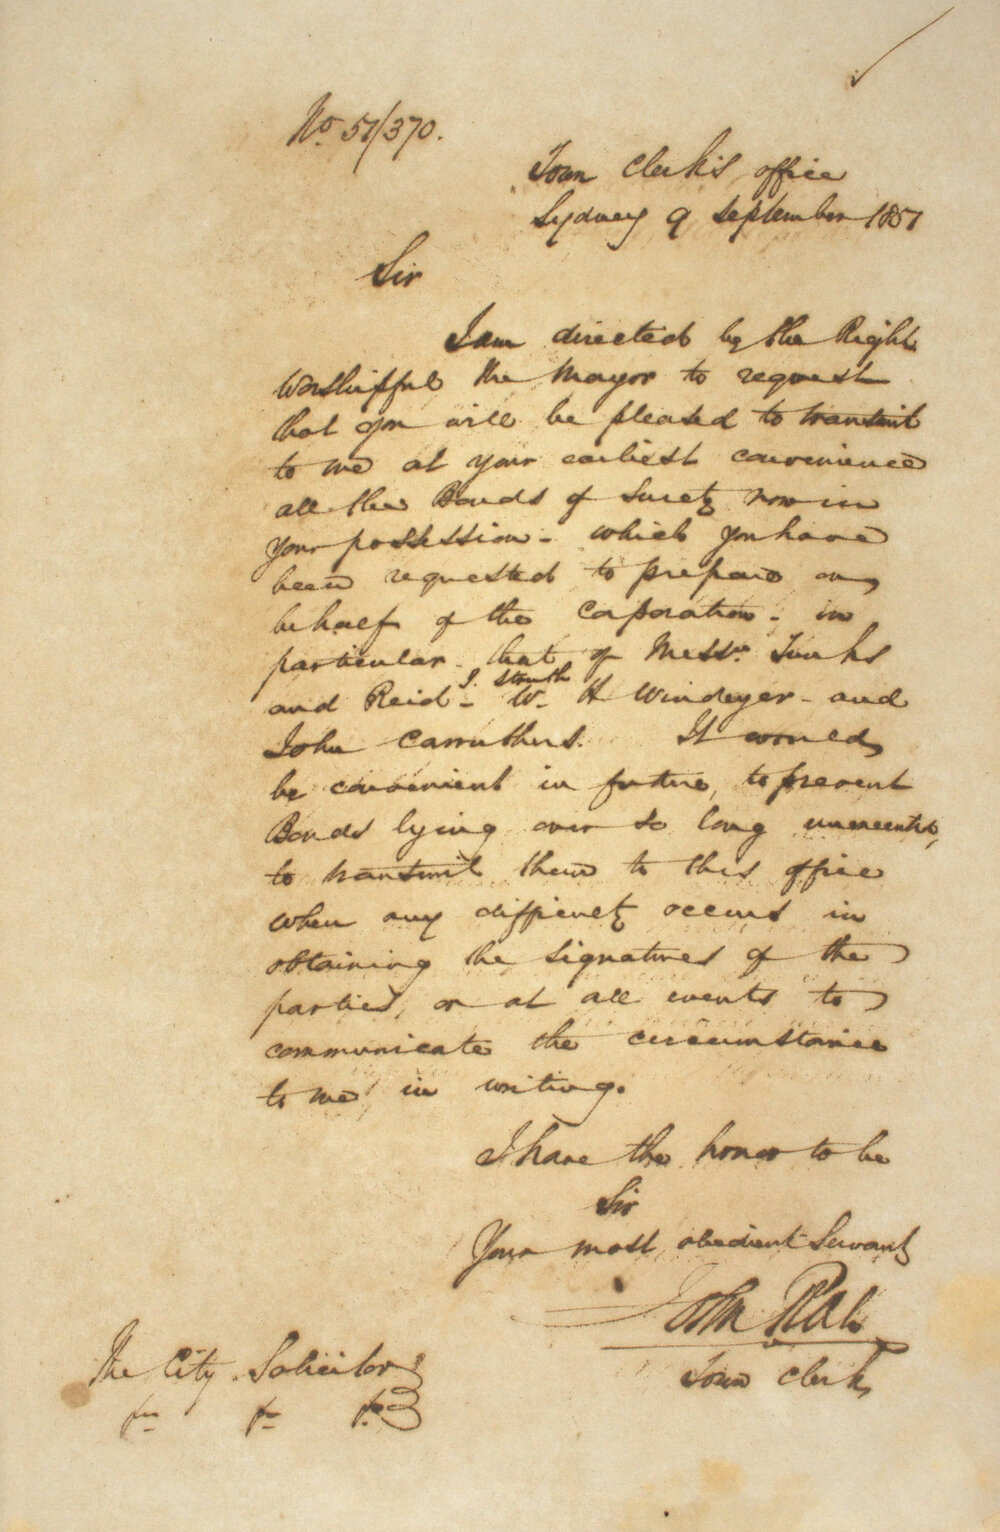 No. 57/370.
Town Clerk's Office
Sydney 9 September 1857
Sir
I am directed by the Right
Worshipful the Mayor to request
that you will be pleased to transmit
to me at your earliest convenience
all the Bonds of Surety now in
your possession - which you have
been requested to prepare on
behalf of the Corporation - in
particular - that of Messrs. Tunks
and Reid - J. Struth W. H Windeyer - and
John Carruthers. It would
be convenient in future, to prevent
Bonds lying over so long unexecuted,
to transmit them to this office
when any difficulty occurs in
obtaining the signatures of the
parties, or at all events to
communicate the circumstance
to me in writing.
I have the honor to be
Sir
Your most obedient Servant
John Rae
Town Clerk
The City Solicitor